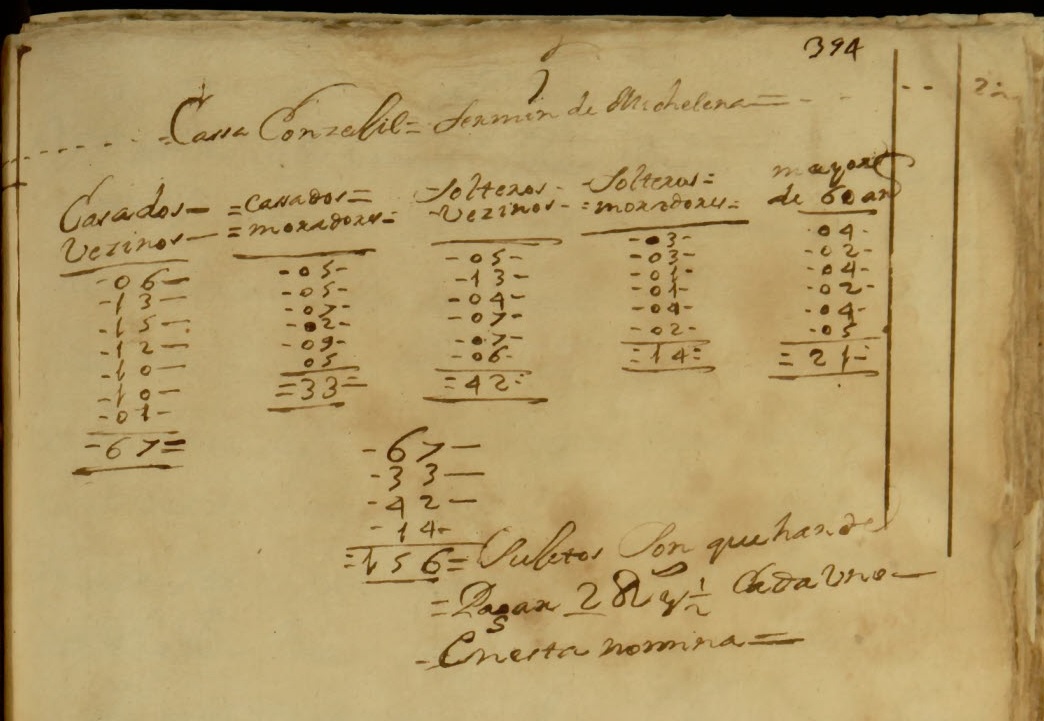 394
Cassa Conzebil= fermin de Michelena=
Casados- =Cassados= -Solteros- -Solteros= mayores
Vezinos- =moradores= -Vezinos- =moradores= de 60 an
-06- -05- -05- -03- -04-
-13- -05- -13- -03- -02-
-15- -07- -04- -01- -04-
-12- -02- -07- -01- -02-
-10- -09- -07- -04- -04-
-10- 05 -06- -02- -05-
-01- =33= =42= =14= =21=
-67=
-67-
-33-
-42-
-14-
=156= Suletos Son que han de
=Pagar 2 Rs y 1/2 Cada Uno-
-Enesta nomina=